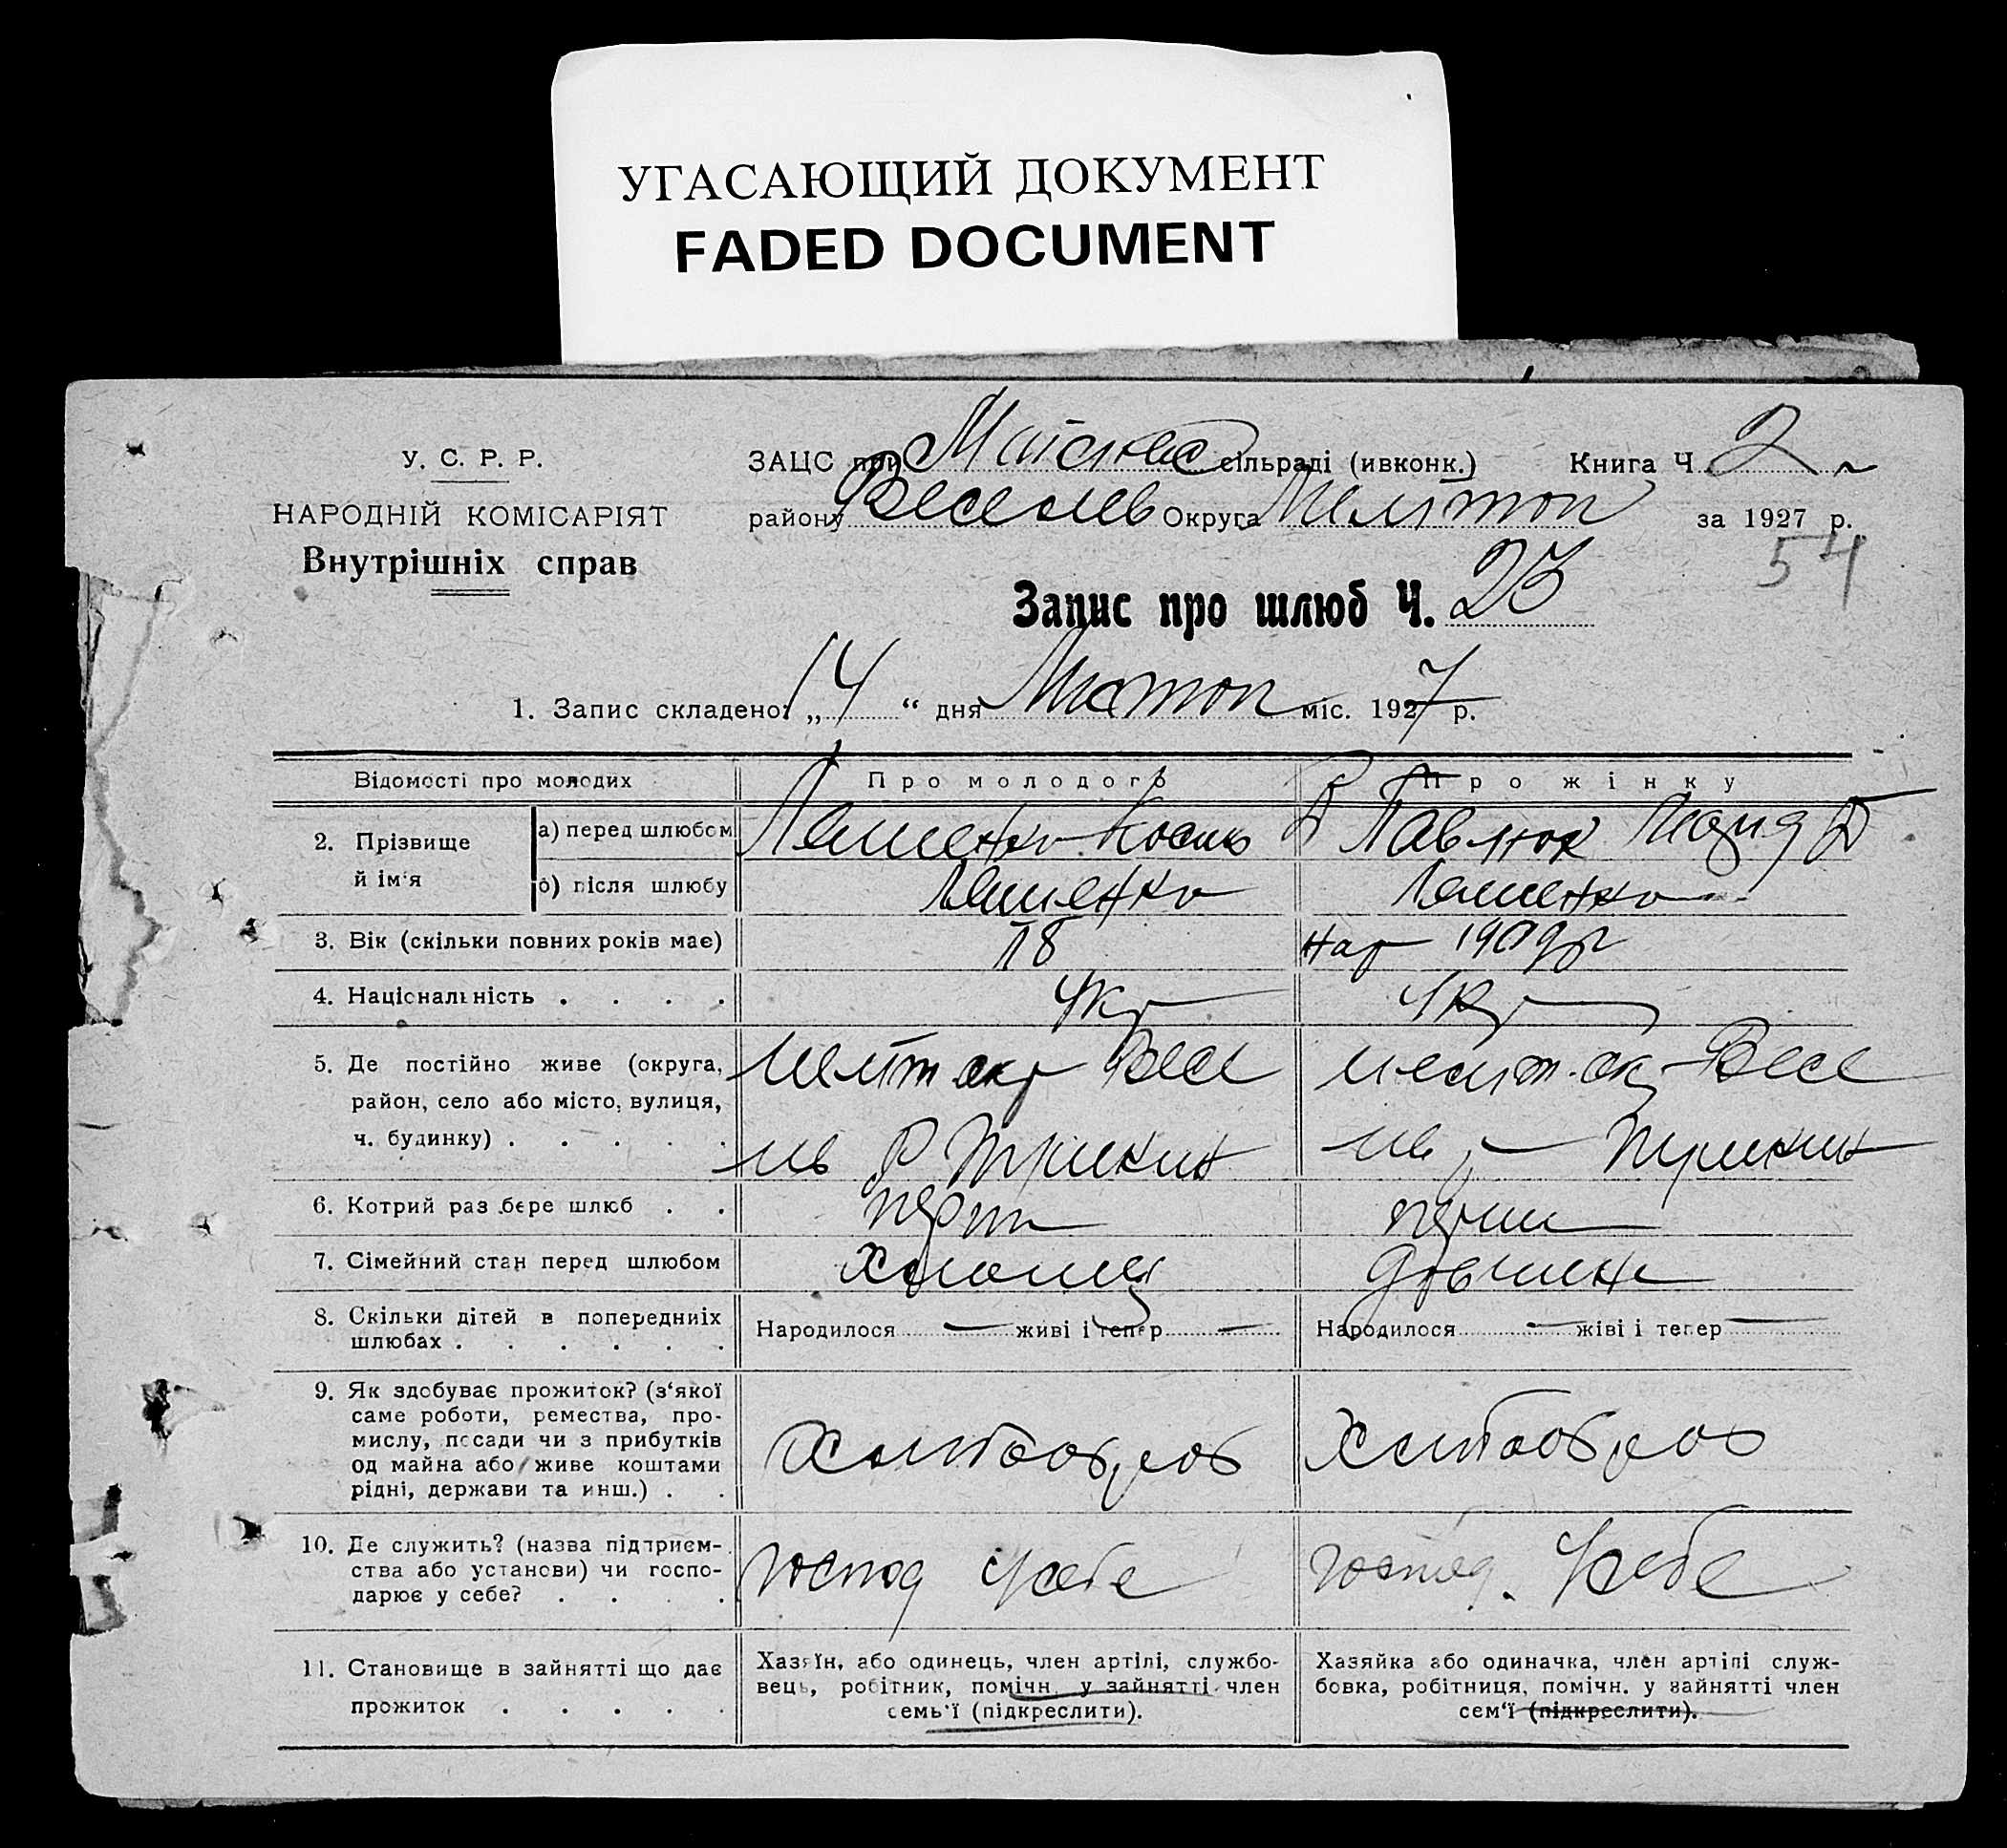 УГАСАЮЩИЙ ДОКУМЕНТ
FADED DOCUMENT
У. С. Р. Р.
НАРОДНІЙ КОМІСАРІЯТ
Внутрішніх справ
ЗАЦС при сільраді (ивконк.) Книга Ч 2
району Веселев Округа Меліттоп за 1927 р.
54
Запис про шлюб Ч. 23
1. Запис складено: „14“ дня Листоп міс. 1927 р.
Відомості про молодих
Про молодого
Про жінку
2. Прізвище й ім‘я
а) перед шлюбом
Лященко
Павлюк
б) після шлюбу
Лященко
Лященко
3. Вік (скільки повних років має)
18
нар 1909 р
4. Національність . . . .
Укр
Укр
5. Де постійно живе (округа,
район, село або місто, вулиця,
ч. будинку) . . . . .
Меліт окр Весе
лів Р
Меліт. ок Весе
лів р
6. Котрий раз бере шлюб . .
перш
перш
7. Сімейний стан перед шлюбом
Хлопець
Дівчина
8. Скільки дітей в попередніх
шлюбах . . . . . .
Народилося — живі і тепер —
Народилося — жіві і тепер —
9. Як здобуває прожиток? (з‘якої
саме роботи, ремества, про-
мислу, посади чи з прибутків
од майна або живе коштами
рідні, держави та инш.) . .
Хлібороб
Хлібороб
10. Де служить? (назва підприєм-
ства або установи) чи госпо-
дарює у себе? . . . .
господ у себе
господ. у себе
11. Становище в зайнятті що дає
прожиток . . . . .
Хазяїн, або одинець, член артілі, службо-
вець, робітник, помічн. у зайнятті член
семь‘ї (підкреслити).
Хазяйка або одиначка, член артілі служ-
бовка, робітниця, помічн. у зайнятті член
сем‘ї (підкреслити).